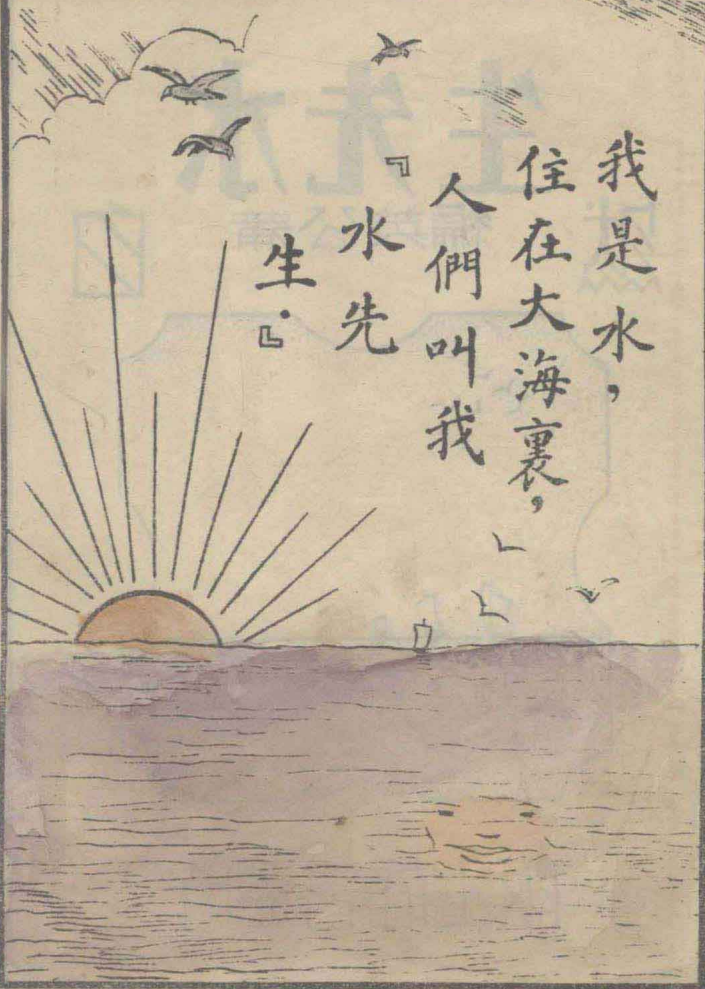 我是水，
住在大海裏，
人們叫我
『水先
生．』